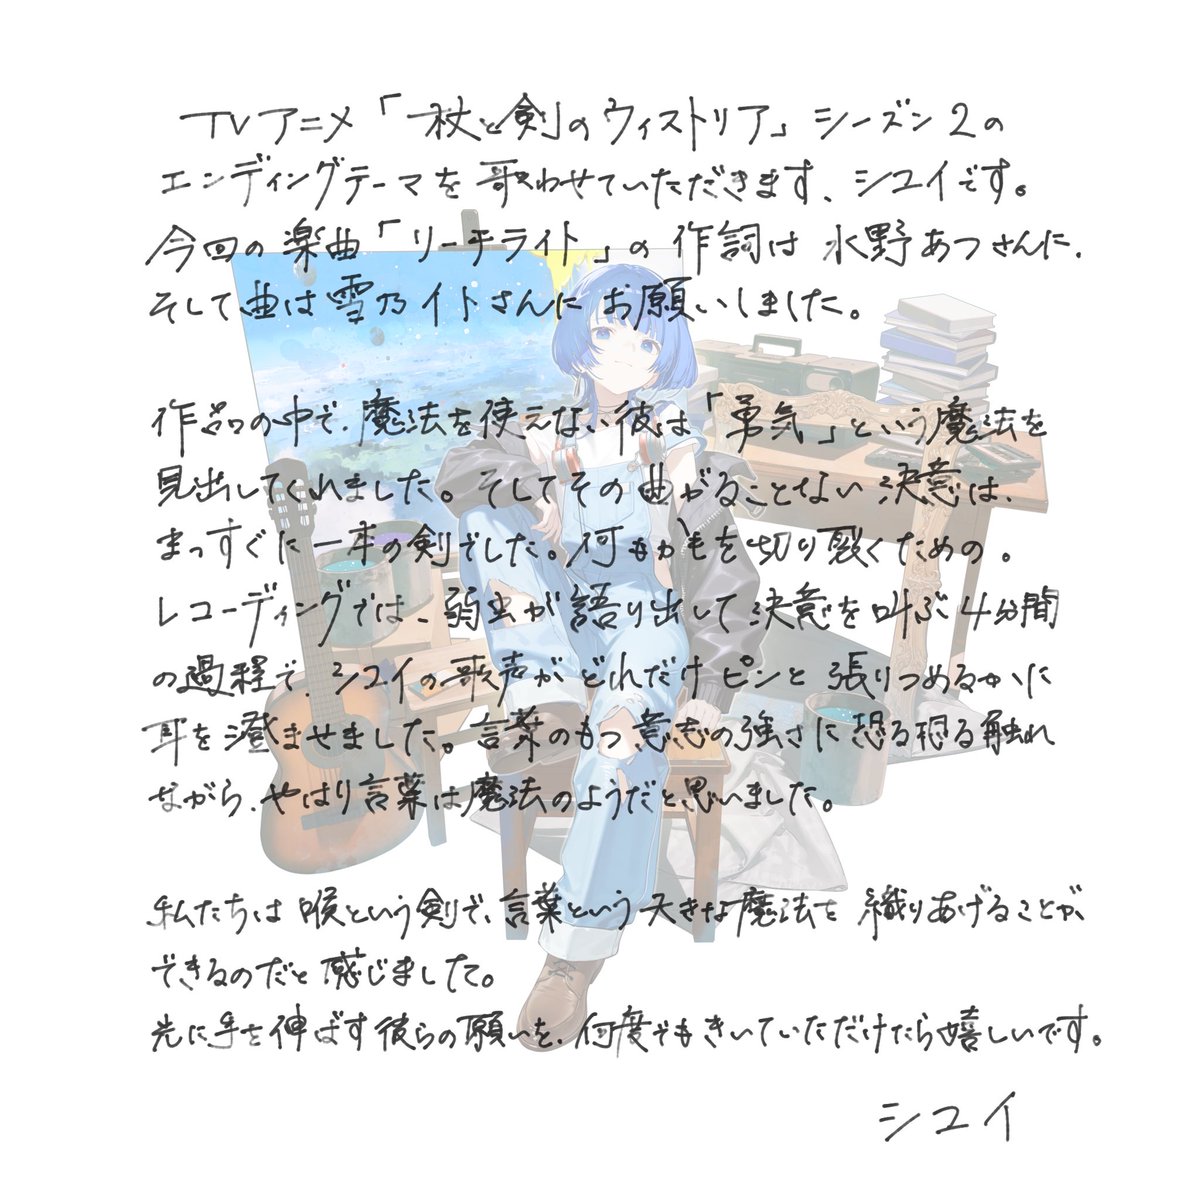 TVアニメ「杖と剣のウィストリア」シーズン2の
エンディングテーマを歌わせていただきます、シユイです。
今回の楽曲「リーチライト」の作詞は水野あつさんに、
そして曲は雪乃イトさんにお願いしました。
作品の中で、魔法を使えない彼は「勇気」という魔法を
見出してくれました。そしてその曲がることない決意は、
まっすぐに一本の剣でした。何もかもを切り裂くための。
レコーディングでは、弱虫が語り出して決意を叫ぶ4分間
の過程で、シユイの歌声がどれだけピンと張りつめるかに
耳を澄ませました。言葉のもつ意志の強さに恐る恐る触れ
ながら、やはり言葉は魔法のようだと思いました。
私たちは喉という剣で、言葉という大きな魔法を織りあげることが、
できるのだと感じました。
光に手を伸ばす彼らの願いを、何度でもきいていただけたら嬉しいです。
シユイ